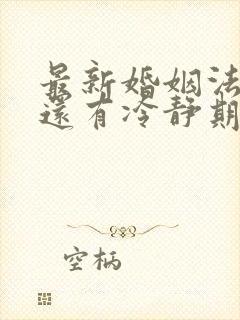 最新婚姻法
還有冷靜期
空柄